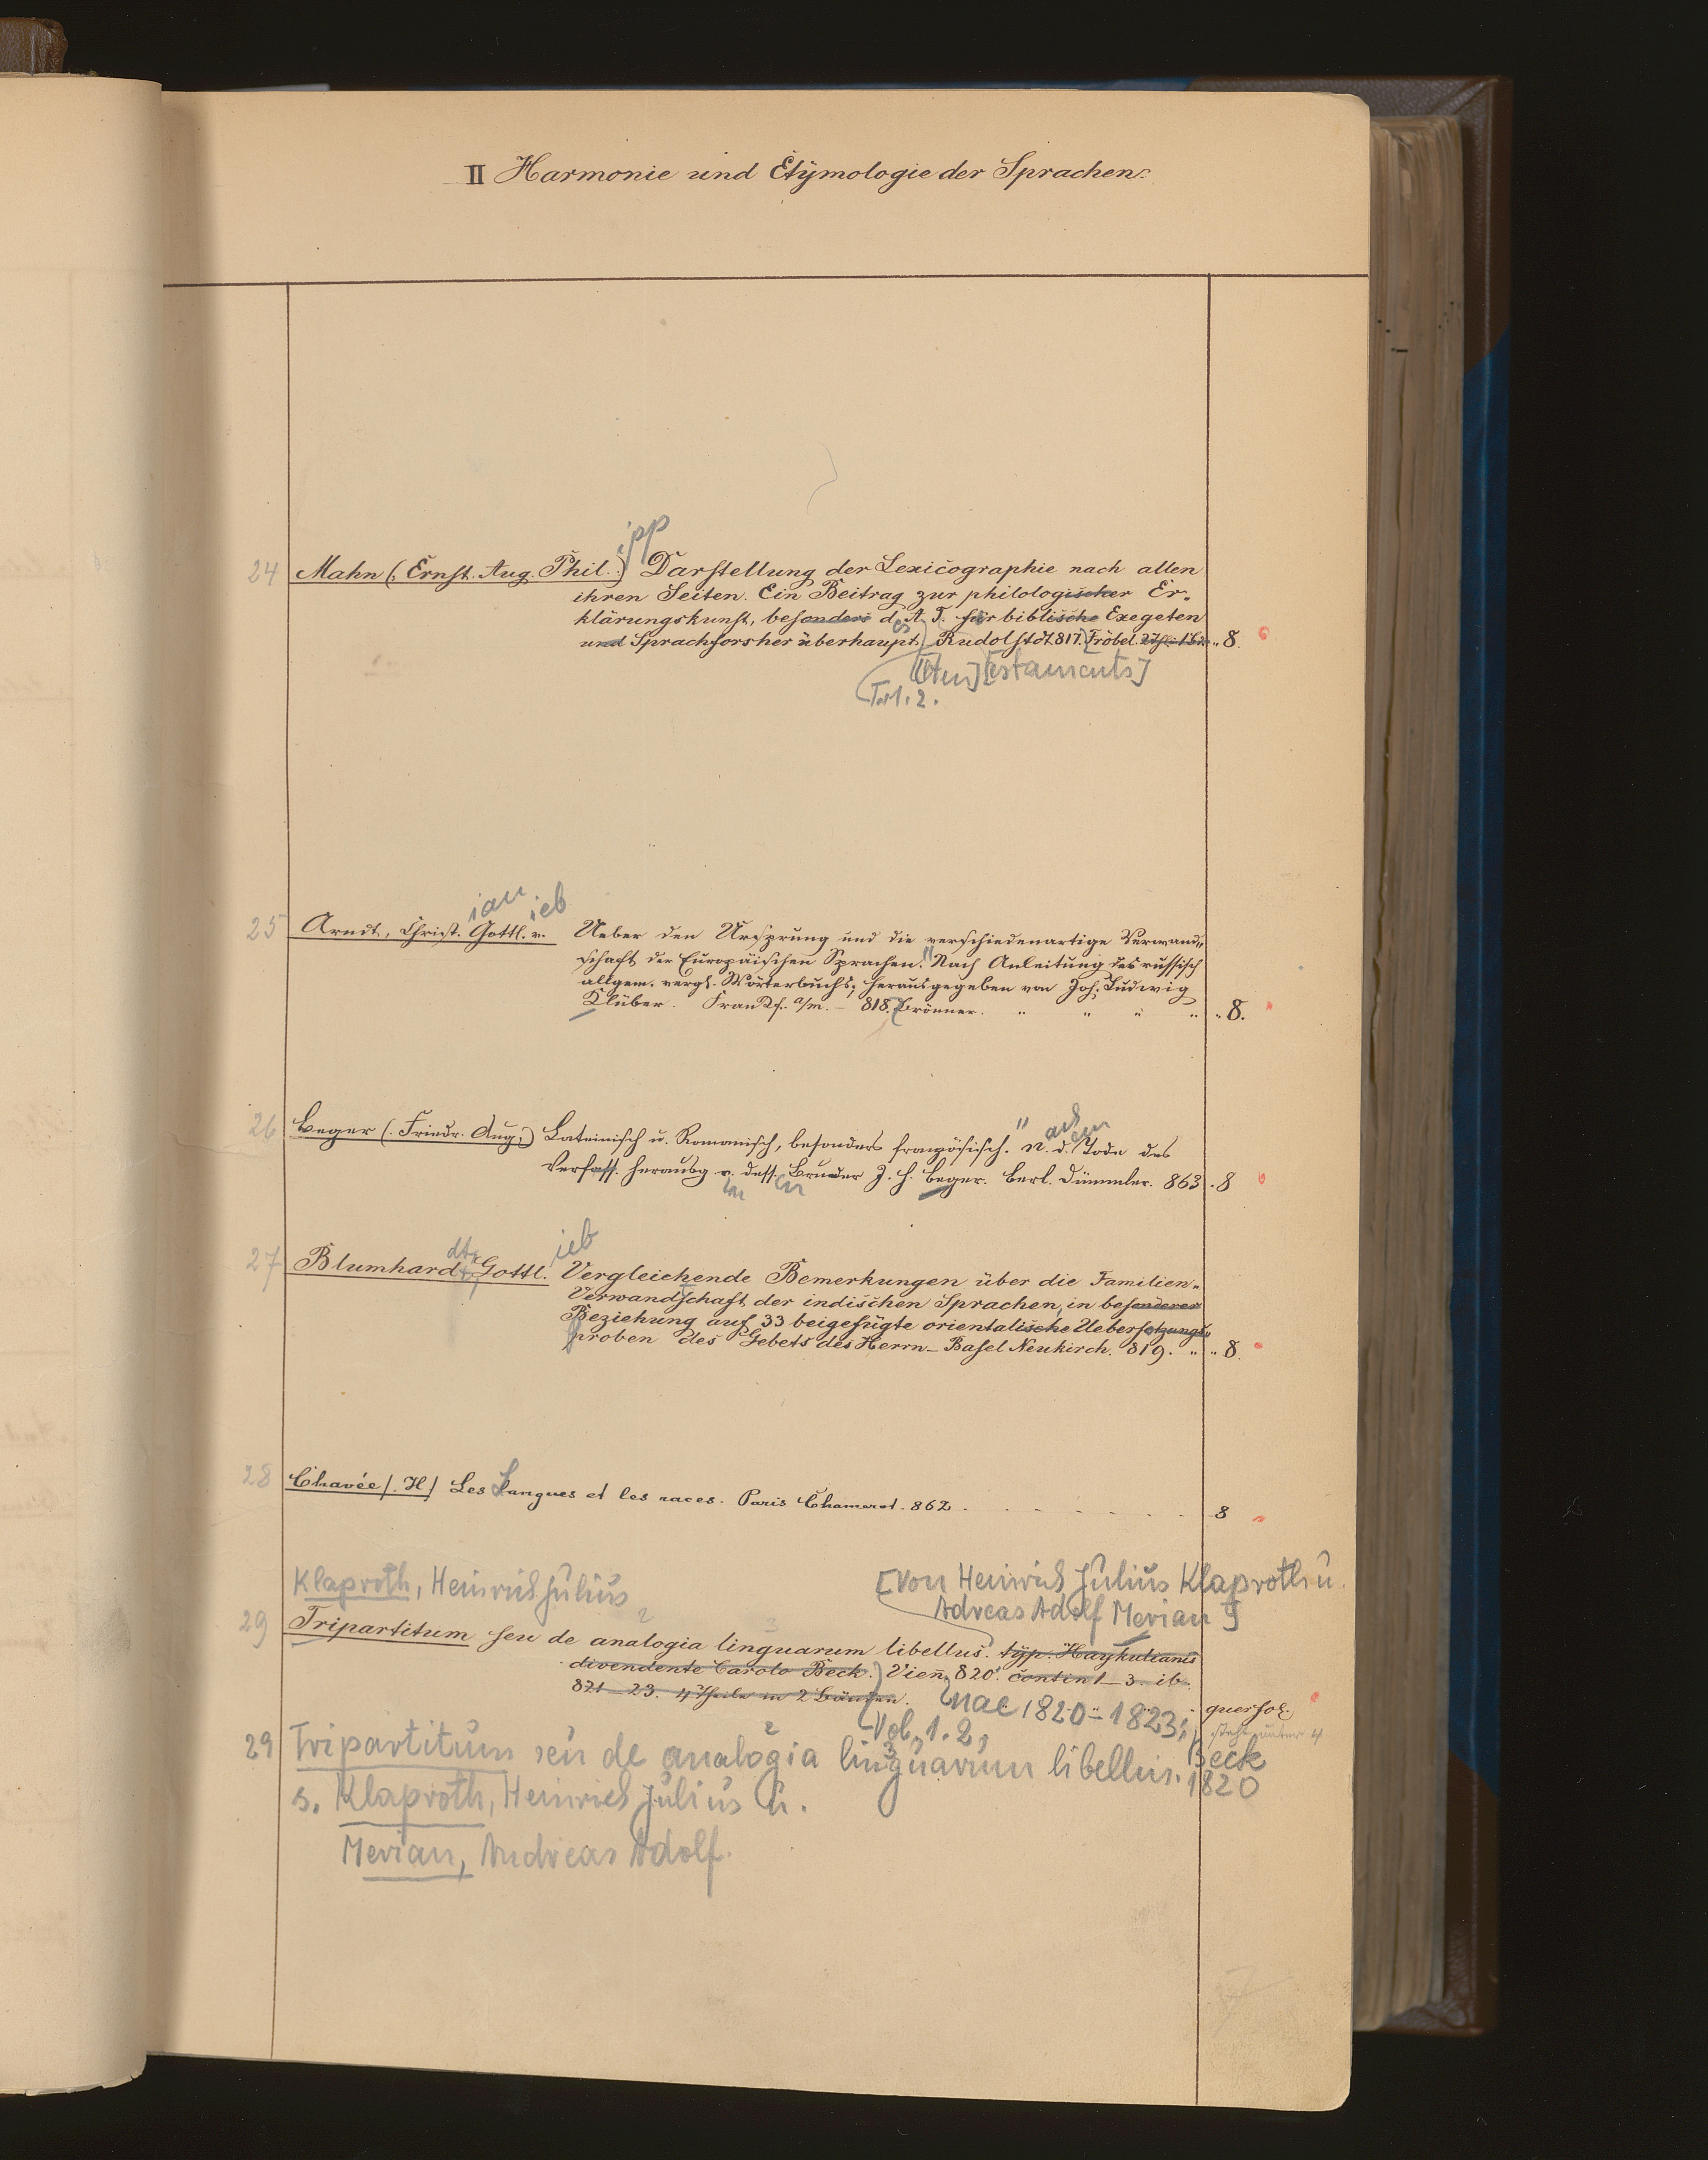 II Harmonie und Etymologie der Sprachen.
ipp
24 Mahn (Ernst. Aug. Phil.) Darstellung der Lexicographie nach allen
ihren Seiten. Ein Beitrag zur philologischer Er-
klärungskunst, besonders d. A. T. für biblische Exegeten
und Sprachforsher überhaupt. Rudolstdt 817. Fröbel. 8.
es
[lten] T[estaments]
T. 1. 2.
ian ieb
25 Arndt, Christ. Gottl. v. Ueber den Ursprung und die verschiedenartige Verwand-
schaft der Europäischen Sprachen. Nach Anleitung des russisch
allgem. vergl. Wörterbuchs, herausgegeben von Joh. Ludwig
Klüber. Frankf. a/m. – 818. Brönner. " " " " 8.
ach em
26 Beger (Friedr. Aug.) Lateinisch u. Romanisch, besonders französisch. N. d. Tode des
Verfass. herausg. v. dess. Bruder J. H. Beger. Berl. Dümmler. 863. 8
dt, ieb
27 Blumhardt, Gottl. Vergleichende Bemerkungen über die Familien-
Verwandschaft der indischen Sprachen, in besonderer
Beziehung auf 33 beigefügte orientalische Uebersetzungs-
proben des Gebets des Herrn – Basel Neukirch. 819. " " 8.
28 Chavée (H) Les Langues et les races. Paris Chamerot. 862 . . . . . 8
Klaproth, Heinrich Julius
[von Heinrich Julius Klaproth u.
Adreas Adolf Merian]
2 3
29 Tripartitum seu de analogia linguarum libellus. typ. Haykulianis
divendente Carolo Beck. Vien. 820. contin 1–3. ib.
821–23. 4 Theile in 2 Bänden. querfol.
nae 1820–1823;
Vol. 1. 2,
steht unter 4
29 Tripartitum seu de analogia linguarum libellus. Beck
1820
s. Klaproth, Heinrich Julius u.
Merian, Andreas Adolf.